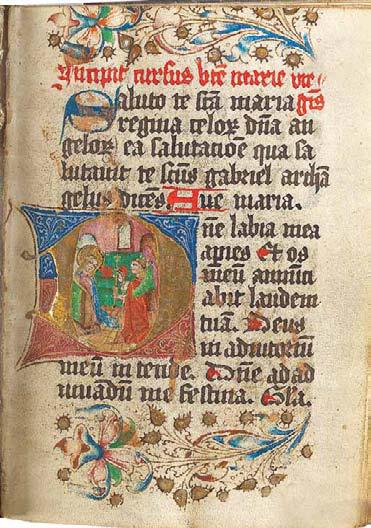 Incipit cursus bte marie vir
ginis
Saluto te sctā maria
regina celoꝝ dña an
geloꝝ ea salutatiōe qua sa
lutauit te sctūs gabriel archā
gelus dicēs. Aue maria.
ne labia mea
aperies Et os
meū annūci
abit laudem
tuā. Deus
in adiutoriū
meū intende. Dñe ad ad
iuuādū me festina. Gla.